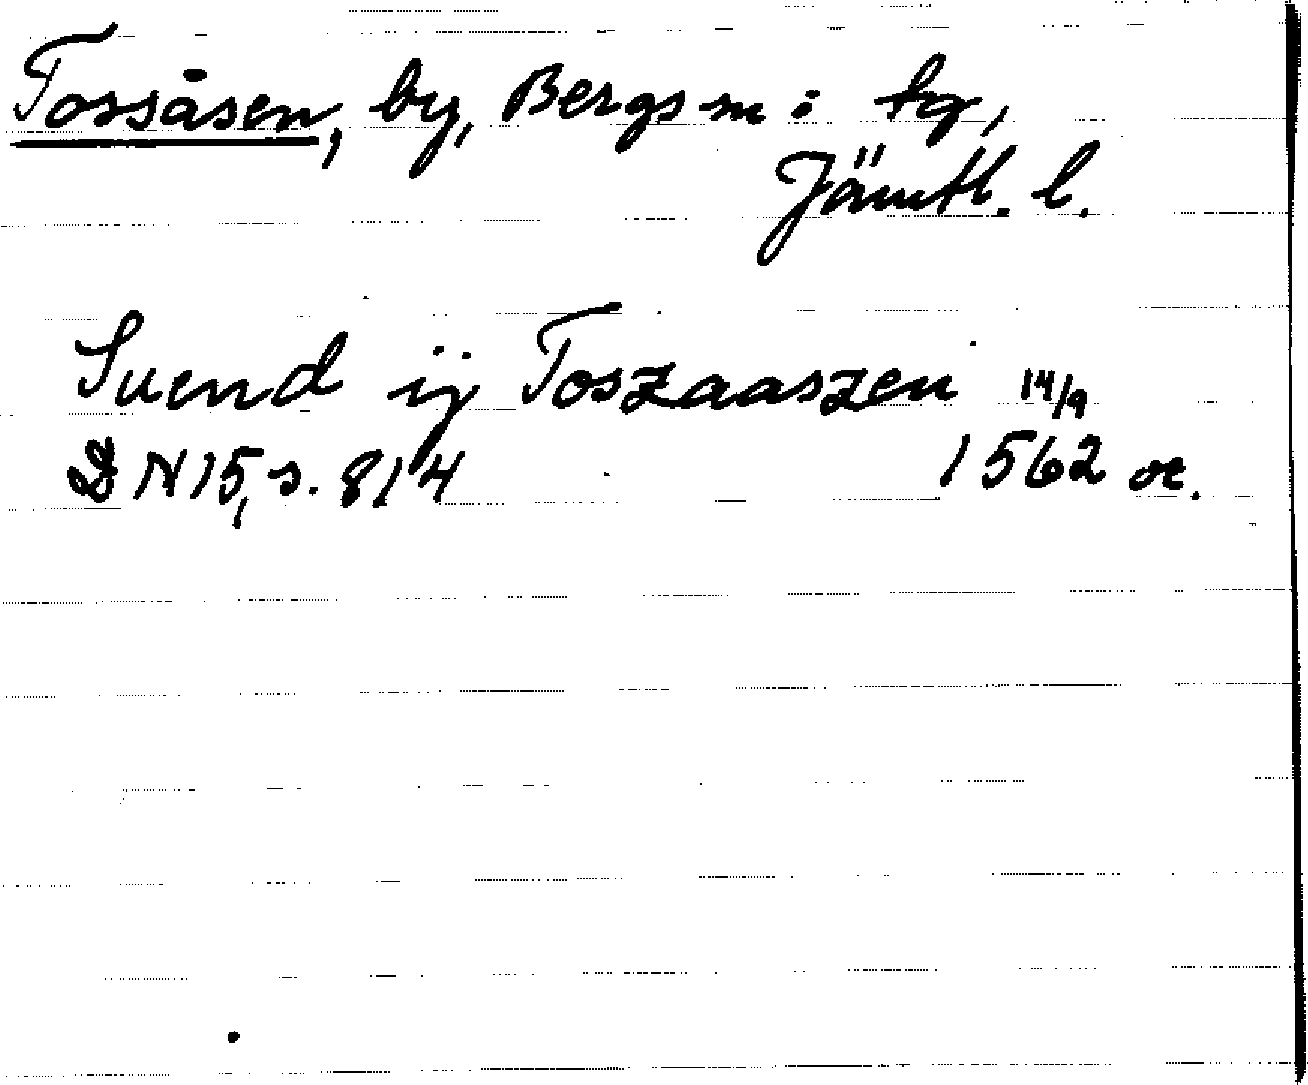 Tossåsen, by, Bergs sn o tg,
Jämtl. l.
Suend ij Toszaaszen 14/9
DN 15, s. 814 1562 or.